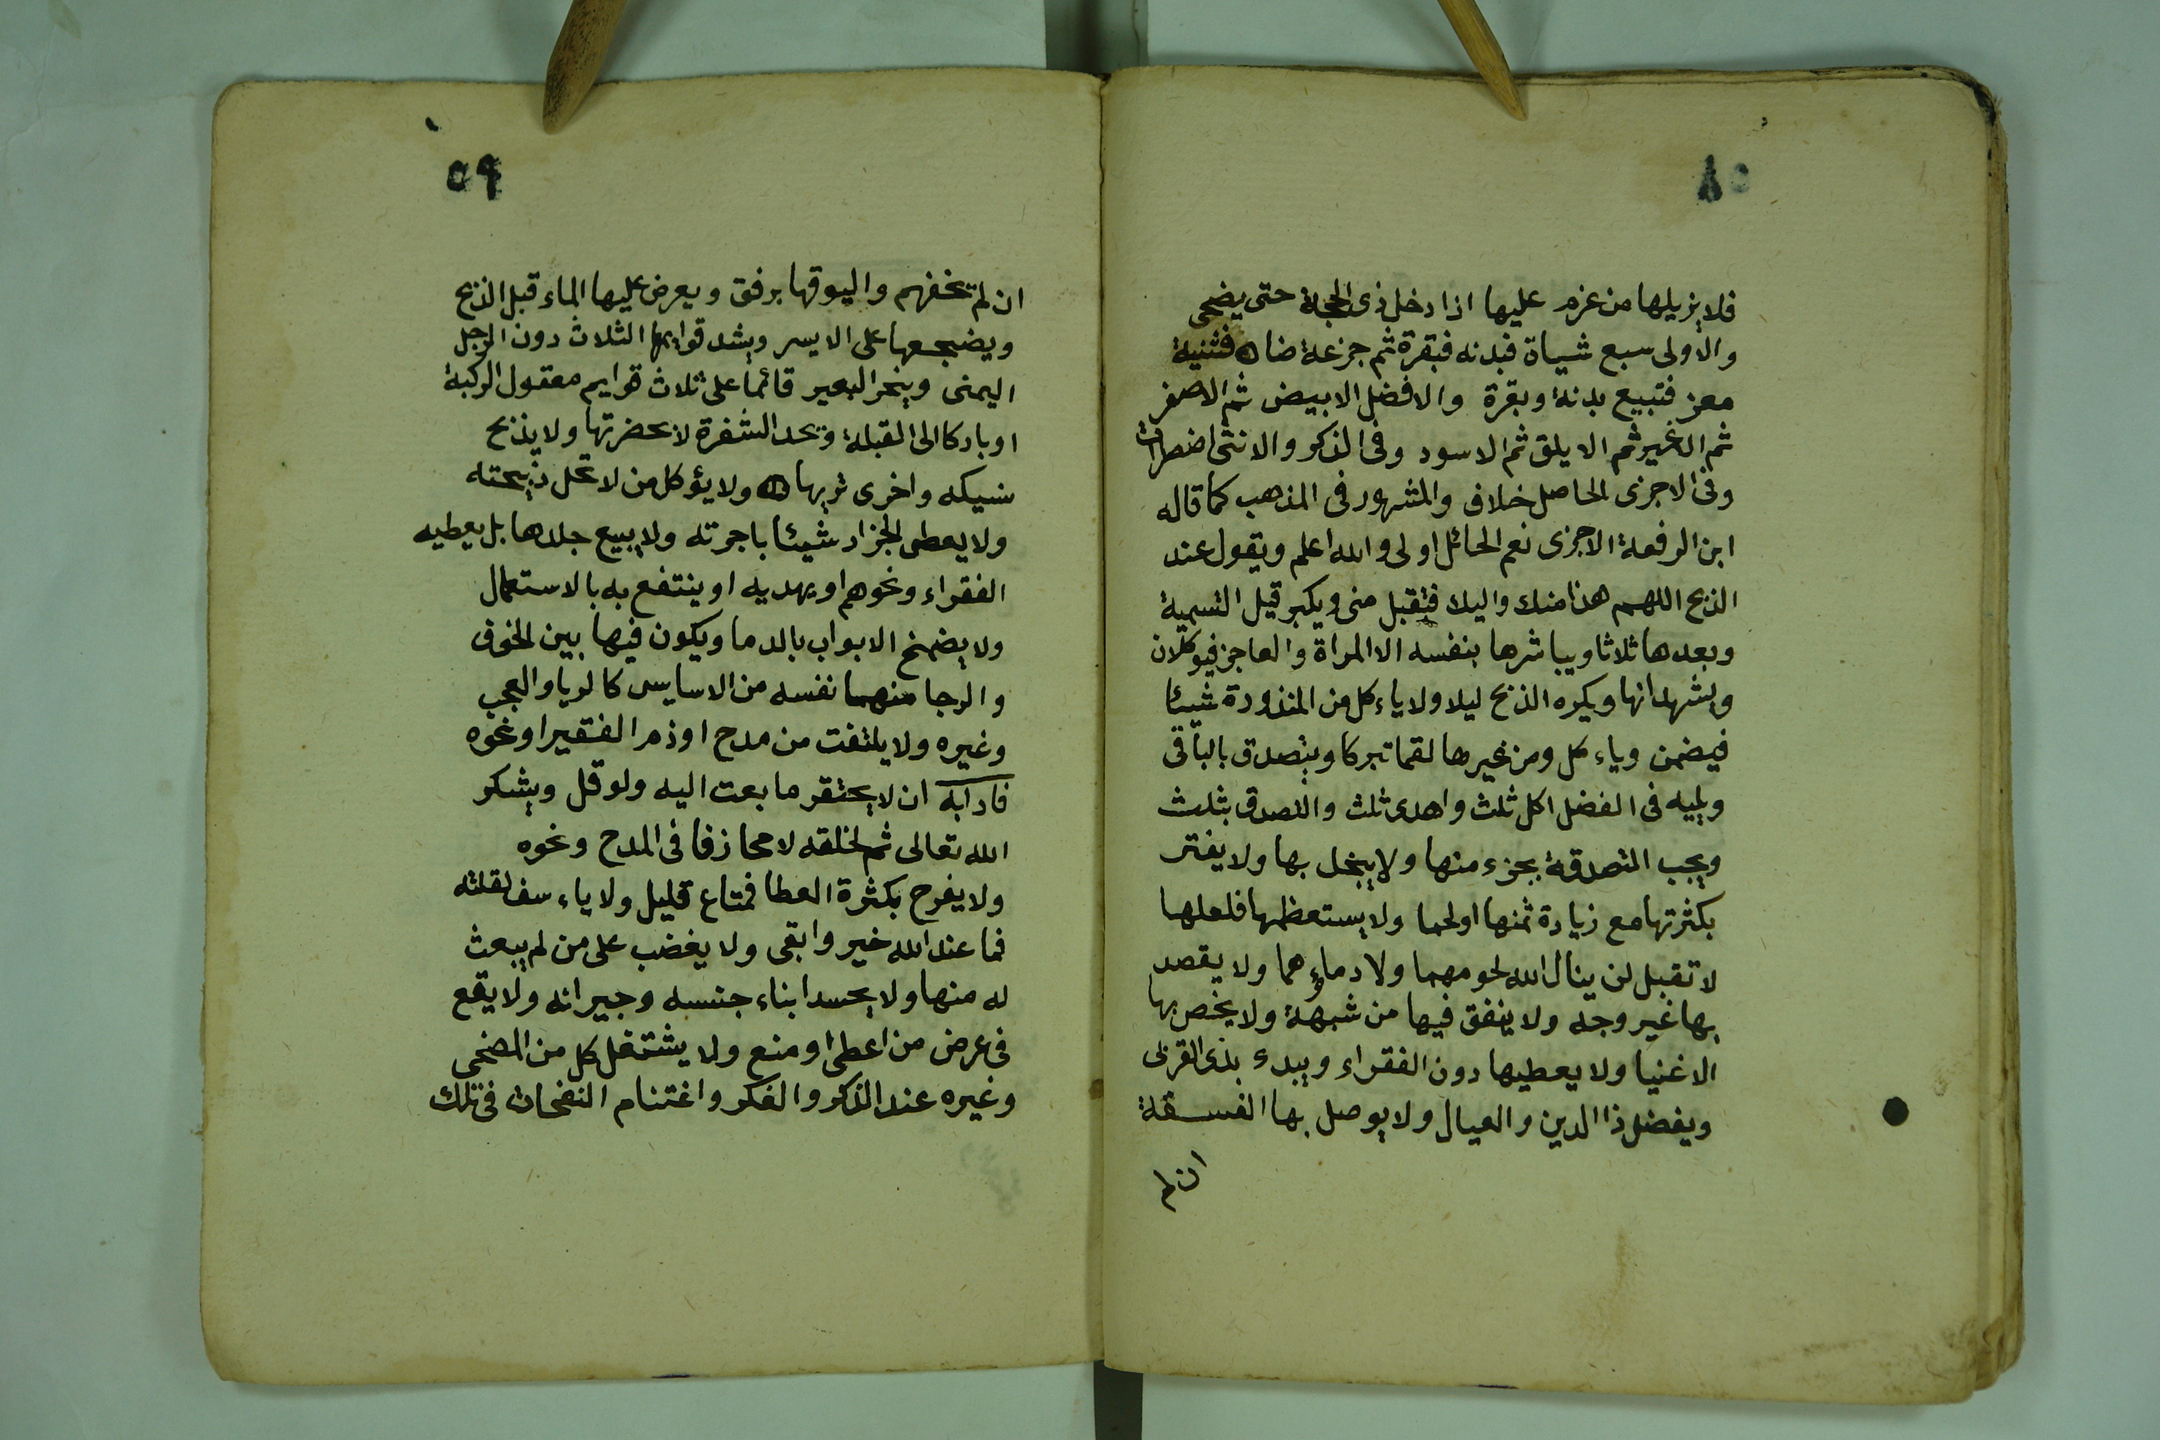 ٥٨
فلا يزيلها من عزم عليها اذا دخل ذى الحجلة حتى يضحى
والاولى سبع شياة فبدنه فبقرة ثم جزعة ضان فثنية
معز فتبيع بدنة وبقرة والافضل الابيض ثم الاصفر
ثم الاغبر ثم الابلق ثم الاسود وفى الذكر والانثى
وفى الاجزى الحاصل خلاف والمشهور فى المذهب كما قاله
ابن الرفعة الاجزى نعم الحائل اولى والله اعلم ويقول عند
الذبح اللهم هذا منك واليلا فتقبل منى ويكبر قيل التسمية
وبعدها ثلاثا ويباشرها بنفسه الا المراة والعاجز فيوكلان
ويشهدانها ويكره الذبح ليلا ولا ياءكل من المنذورة شيئا
فيضمن وياءكل ومن غيرها لقما تبركا ويتصدق بالباقى
ويليه فى الفضل اكل ثلث واهدى ثلث والتصدق بثلث
ويجب التصدقة بجزء منها ولا يبخل بها ولا يفتر
بكثرتها مع زيادة ثمنها اولحما ولا يستعظمها فلعلها
لا تقبل لن ينال الله لحومهما ولا دماءهما ولا يقصد
بها غير وجه ولا ينفق فيها من شبهة ولا يخص بها
الاغنيا ولا يعطيها دون الفقراء ويبدء بذى القربى
ويفضل ذا الدين والعيال ولا يوصل بها الفسقة
ان لم
٥٩
ان لم يخفهم واليوقها برفق ويعرض عليها الماء قبل الذبح
ويضجعها على الايسر ويشد قوايمها الثلاث دون الرجل
اليمنى وينحر البعير قائما على ثلاث قوايم معقول الركبة
اوباركا الى القبلة ويحد الشفرة لا بحضرتها ولا يذبح
نسيكه واخرى تريها ولا يؤكل من لا تحل ذبيحته
ولا يعطى الجزار شيئا باجرته ولا يبيع جلدها بل يعطيه
الفقراء ونحوهم او يهديه او ينتفع به بالاستعمال
ولا يضمخ الابواب بالدما ويكون فيها بين الخوف
والرجا منهما نفسه من الاسايس كالريا والعجب
وغيره ولا يلتفت من مدح او ذم الفقير او نحوه
فادابه ان لا يحتقر ما بعت اليه ولو قل ويشكر
الله تعالى ثم لخلقه لا مجازفا فى المدح ونحوه
ولا يفرح بكثرة العطا فمتاع قليل ولا ياء سف لقلته
فما عند الله خير وابقى ولا يغضب على من لم يبعث
له منها ولا يحسد ابناء جنسه وجيرانه ولا يقع
فى عرض من اعطى او منع ولا يشتغل كل من المضحى
وغيره عند الذكر والفكر واغتنام النفحات فى تلك